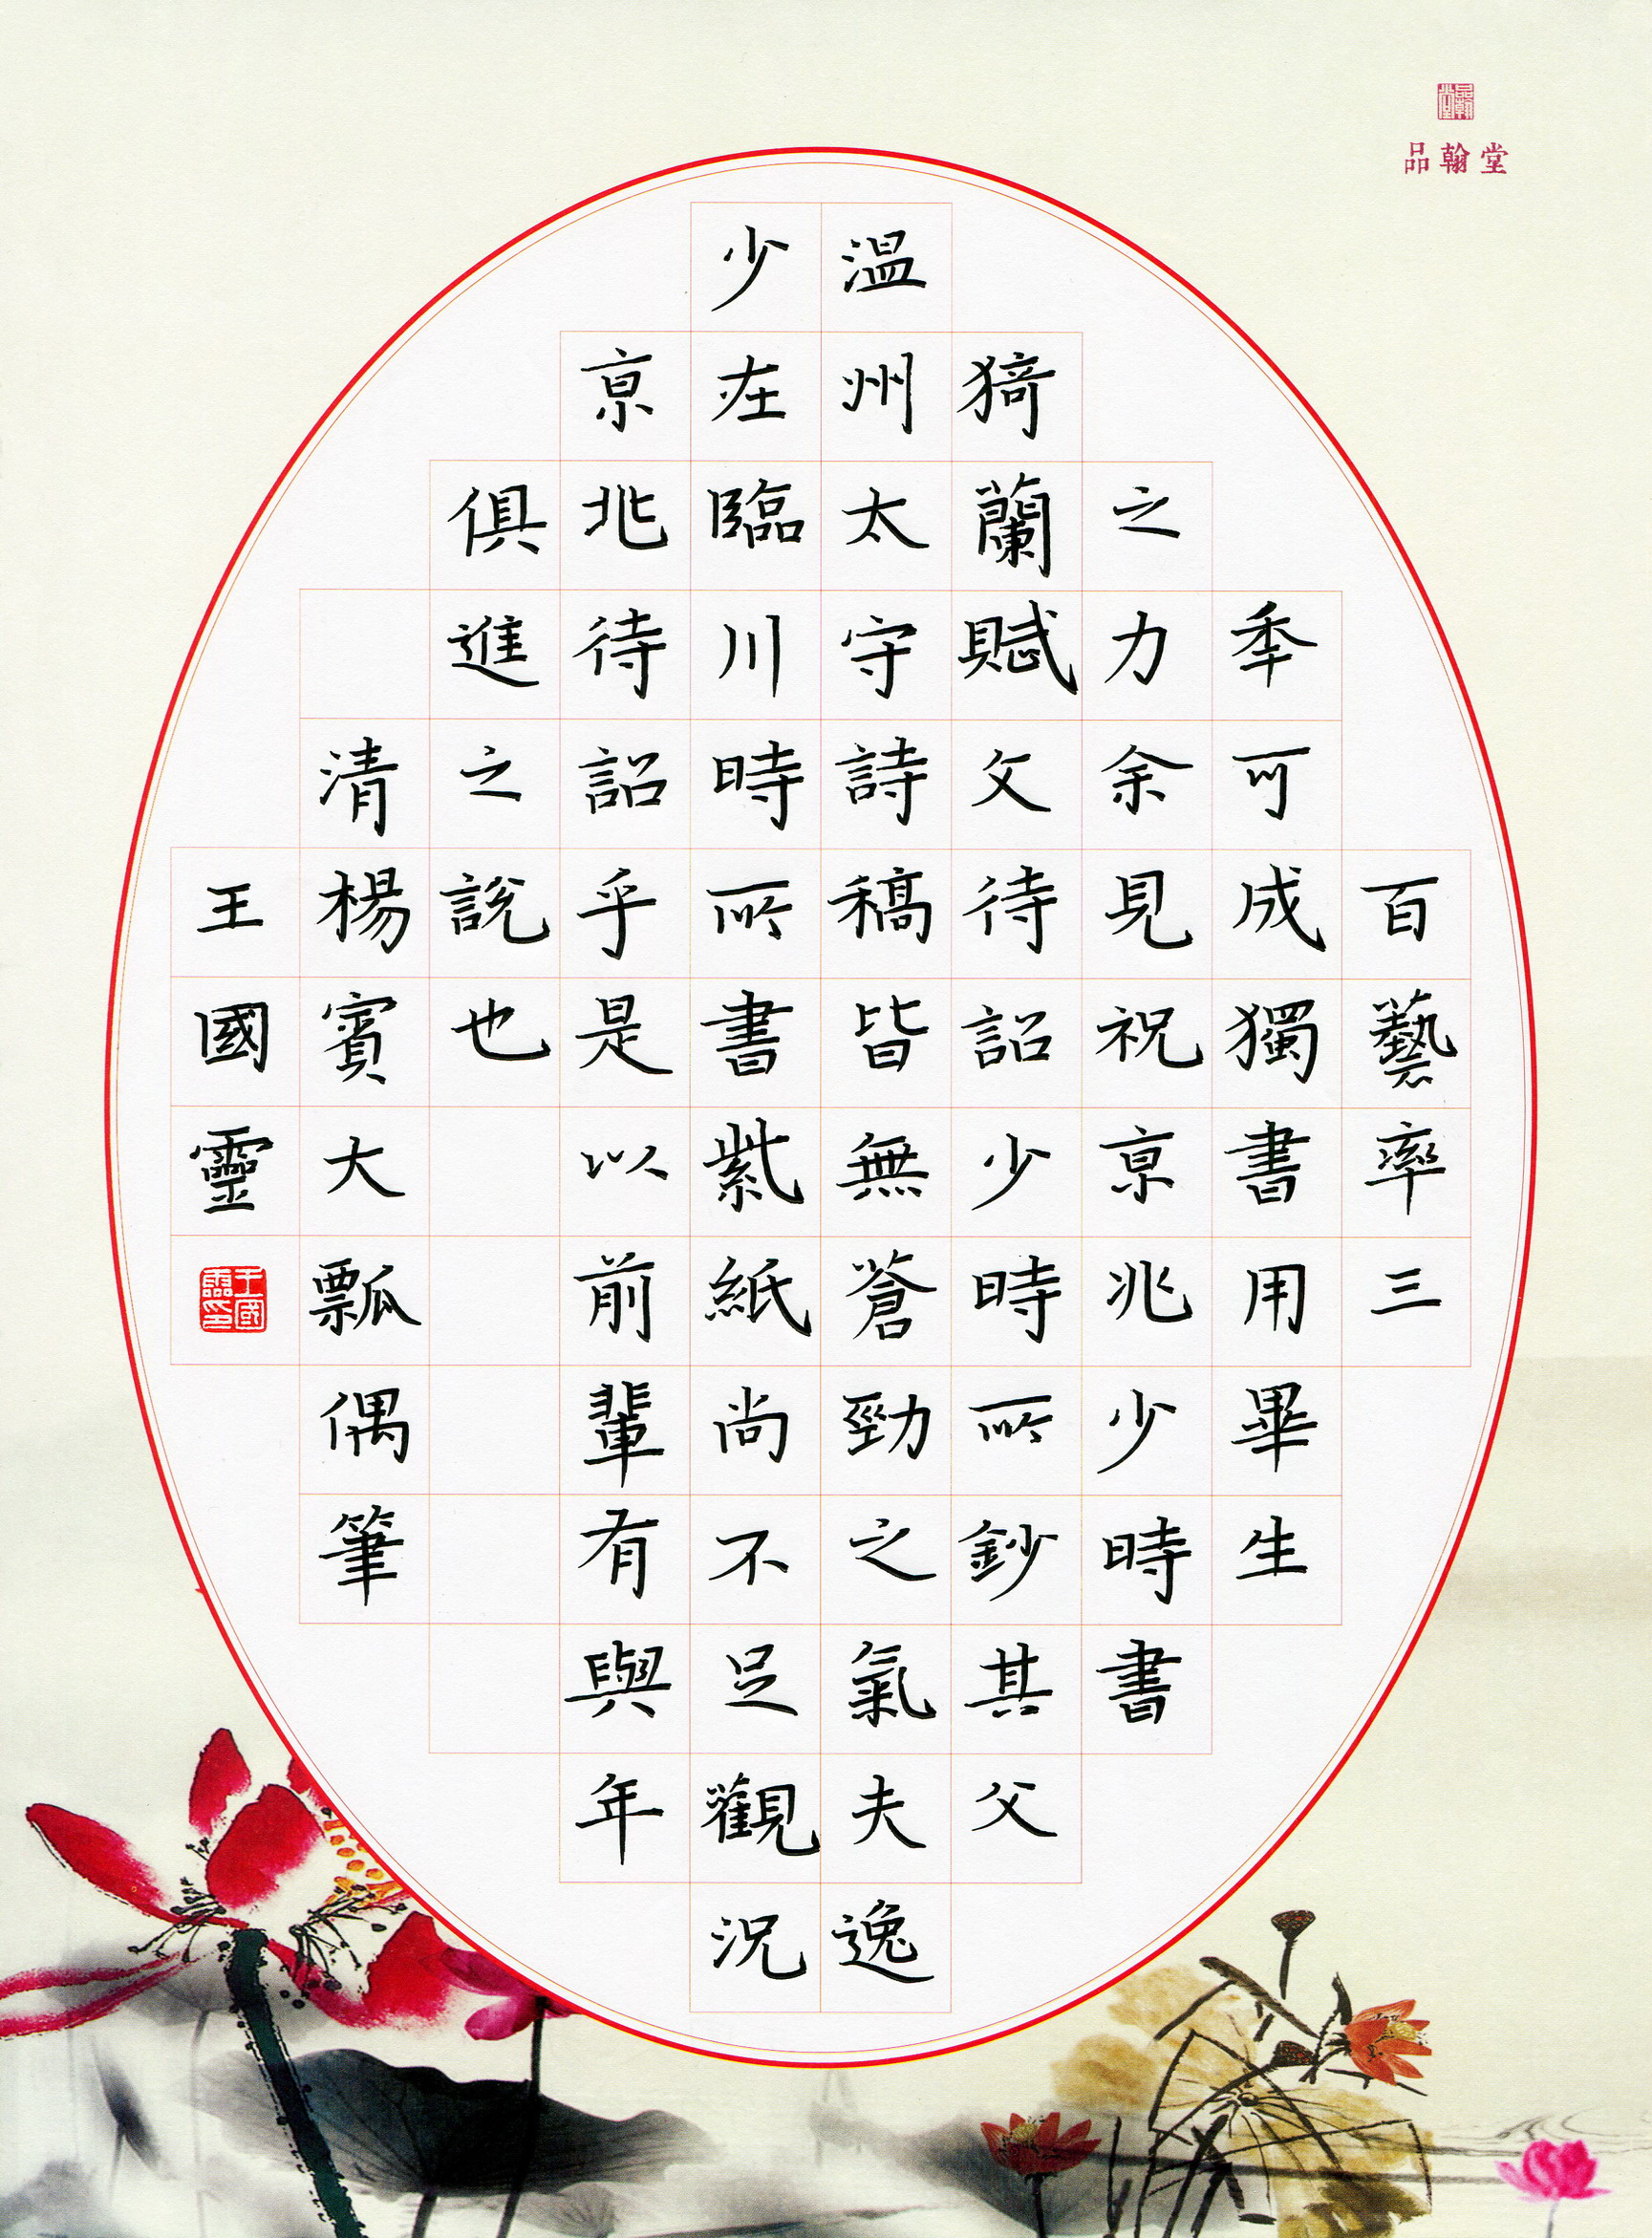 品翰堂
百藝率三
季可成獨書用畢生
之力余見祝京兆少時書
猗蘭賦文待詔少時所鈔其父
温州太守詩稿皆無蒼勁之氣夫逸
少在臨川時所書紫紙尚不足觀況
京兆待詔乎是以前輩有與年
俱進之說也
清楊賓大瓢偶筆
王國靈
王國靈印
品翰堂